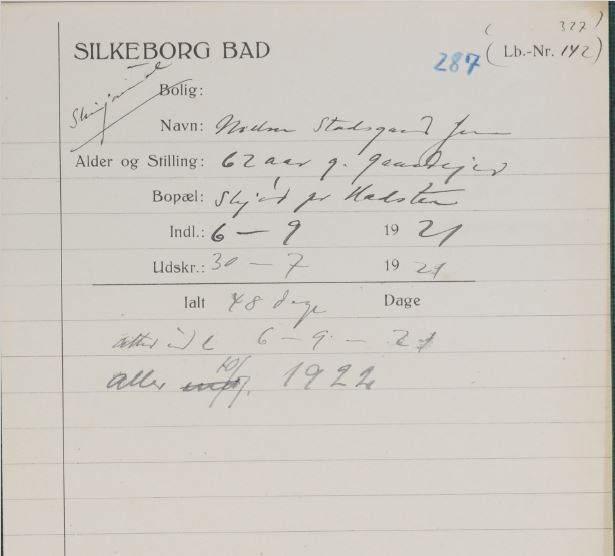 ( 327 )
SILKEBORG BAD 287 ( Lb.-Nr. 142 )
Bolig:
Navn: Nielsen Stadsgaard Jens
Alder og Stilling: 62 aar g. gaardejer
Bopæl: Skjød pr Hadsten
Indl.: 6 – 9 1921
Udskr.: 30 – 7 1921
Ialt 48 dage Dage
atter indl 6 – 9 – 21
atter 10/7. 1922